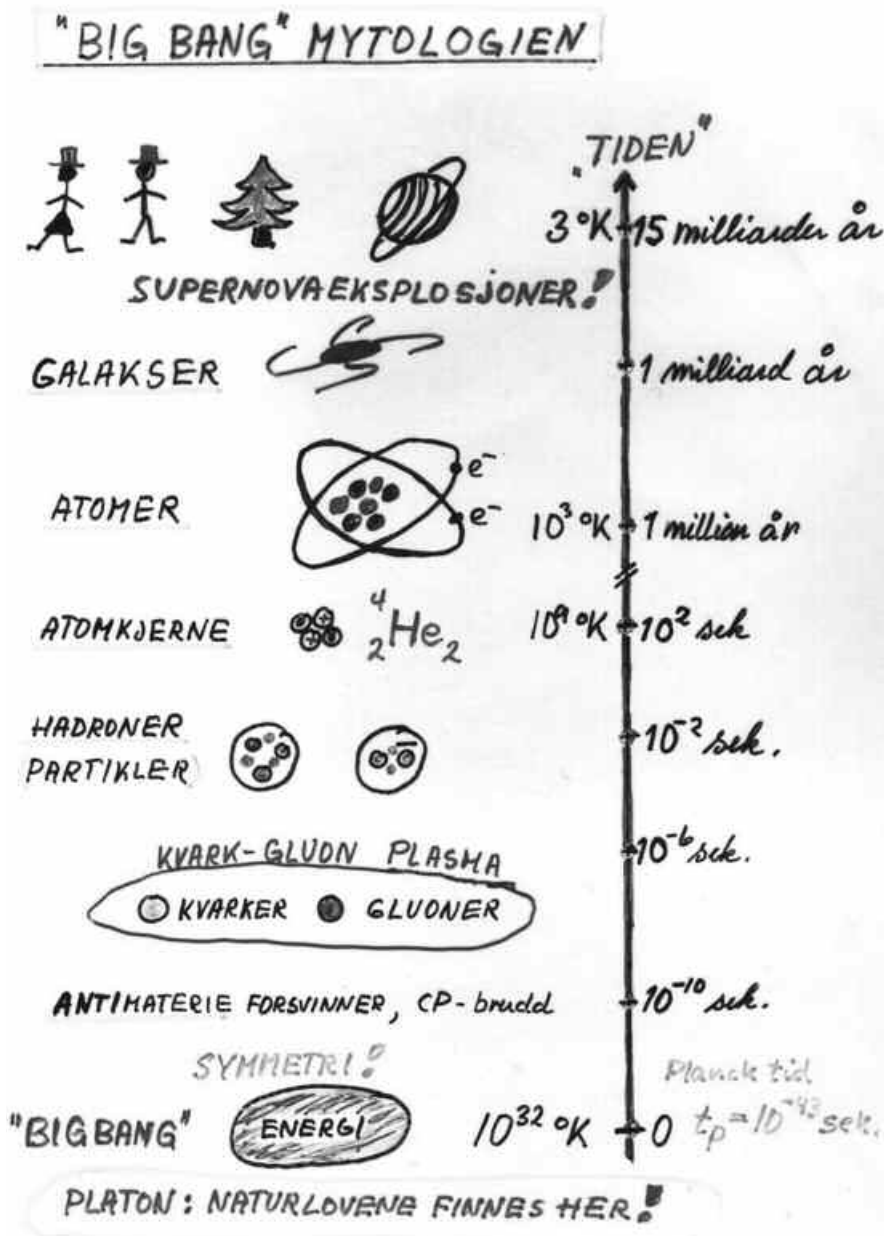 "BIG BANG" MYTOLOGIEN
"TIDEN"
3 °K 15 milliarder år
SUPERNOVAEKSPLOSJONER!
GALAKSER 1 milliard år
e⁻
ATOMER e⁻ 10³ °K 1 million år
ATOMKJERNE ⁴₂He₂ 10⁹ °K 10² sek
HADRONER
PARTIKLER 10⁻² sek.
KVARK-GLUON PLASMA 10⁻⁶ sek.
KVARKER GLUONER
ANTIMATERIE FORSVINNER, CP-brudd 10⁻¹⁰ sek.
SYMMETRI! Planck tid
"BIGBANG" ENERGI 10³² °K 0 tₚ=10⁻⁴³ sek.
PLATON: NATURLOVENE FINNES HER!